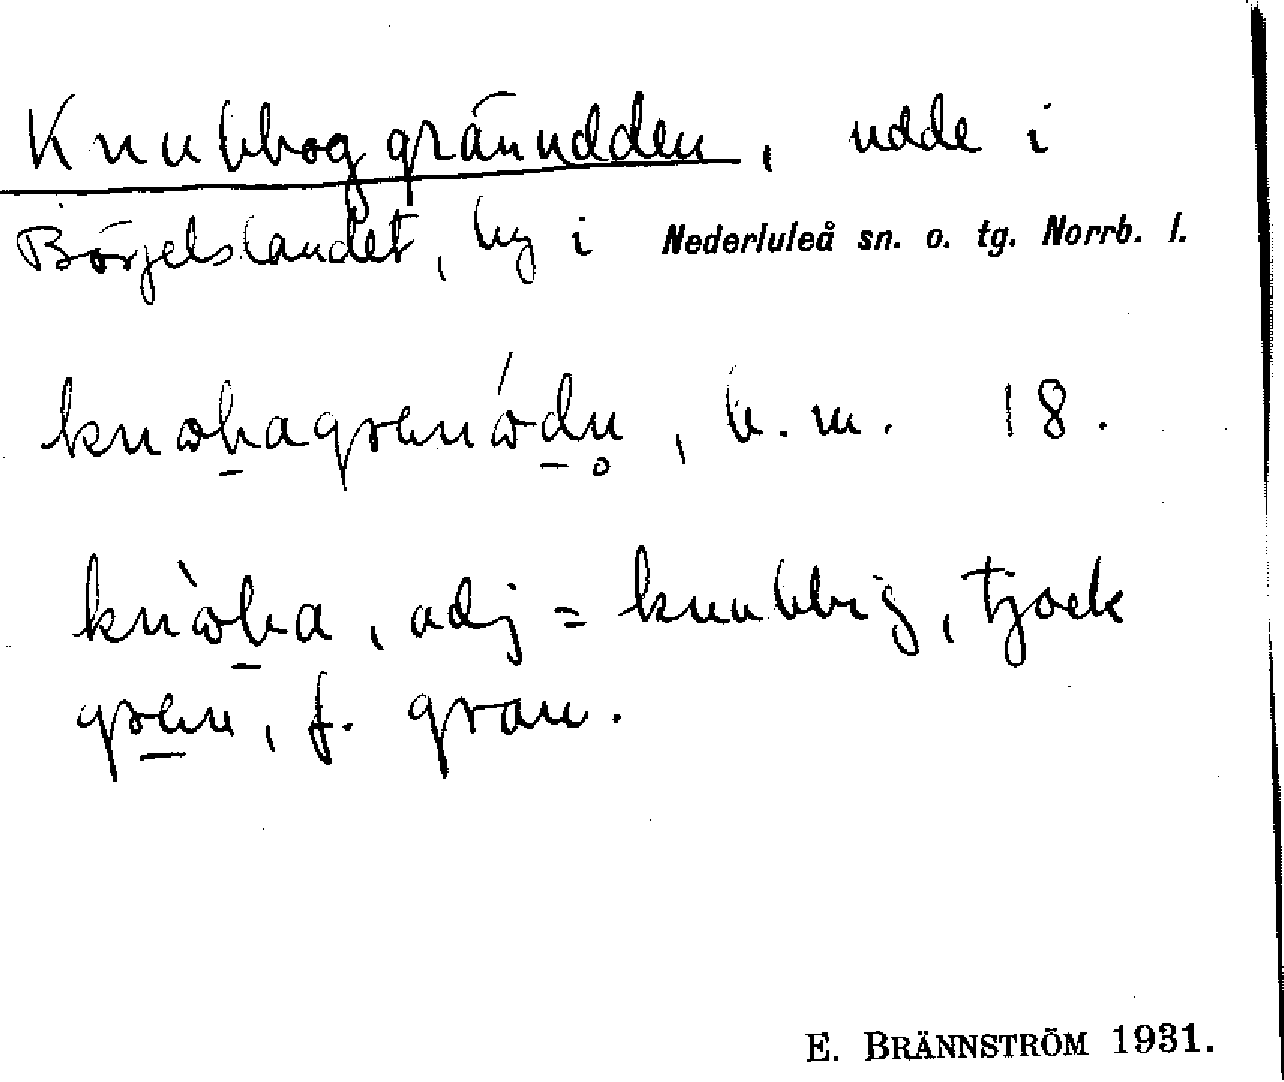 Knubboggränudden, udde i
Börjelslandet, by i Nederluleå sn. o. tg. Norrb. l.
knωbagrenώdn̥, b.m. 18.
knὼba, adj = knubbig, tjock
gren, f. gran.
E. BRÄNNSTRÖM 1931.